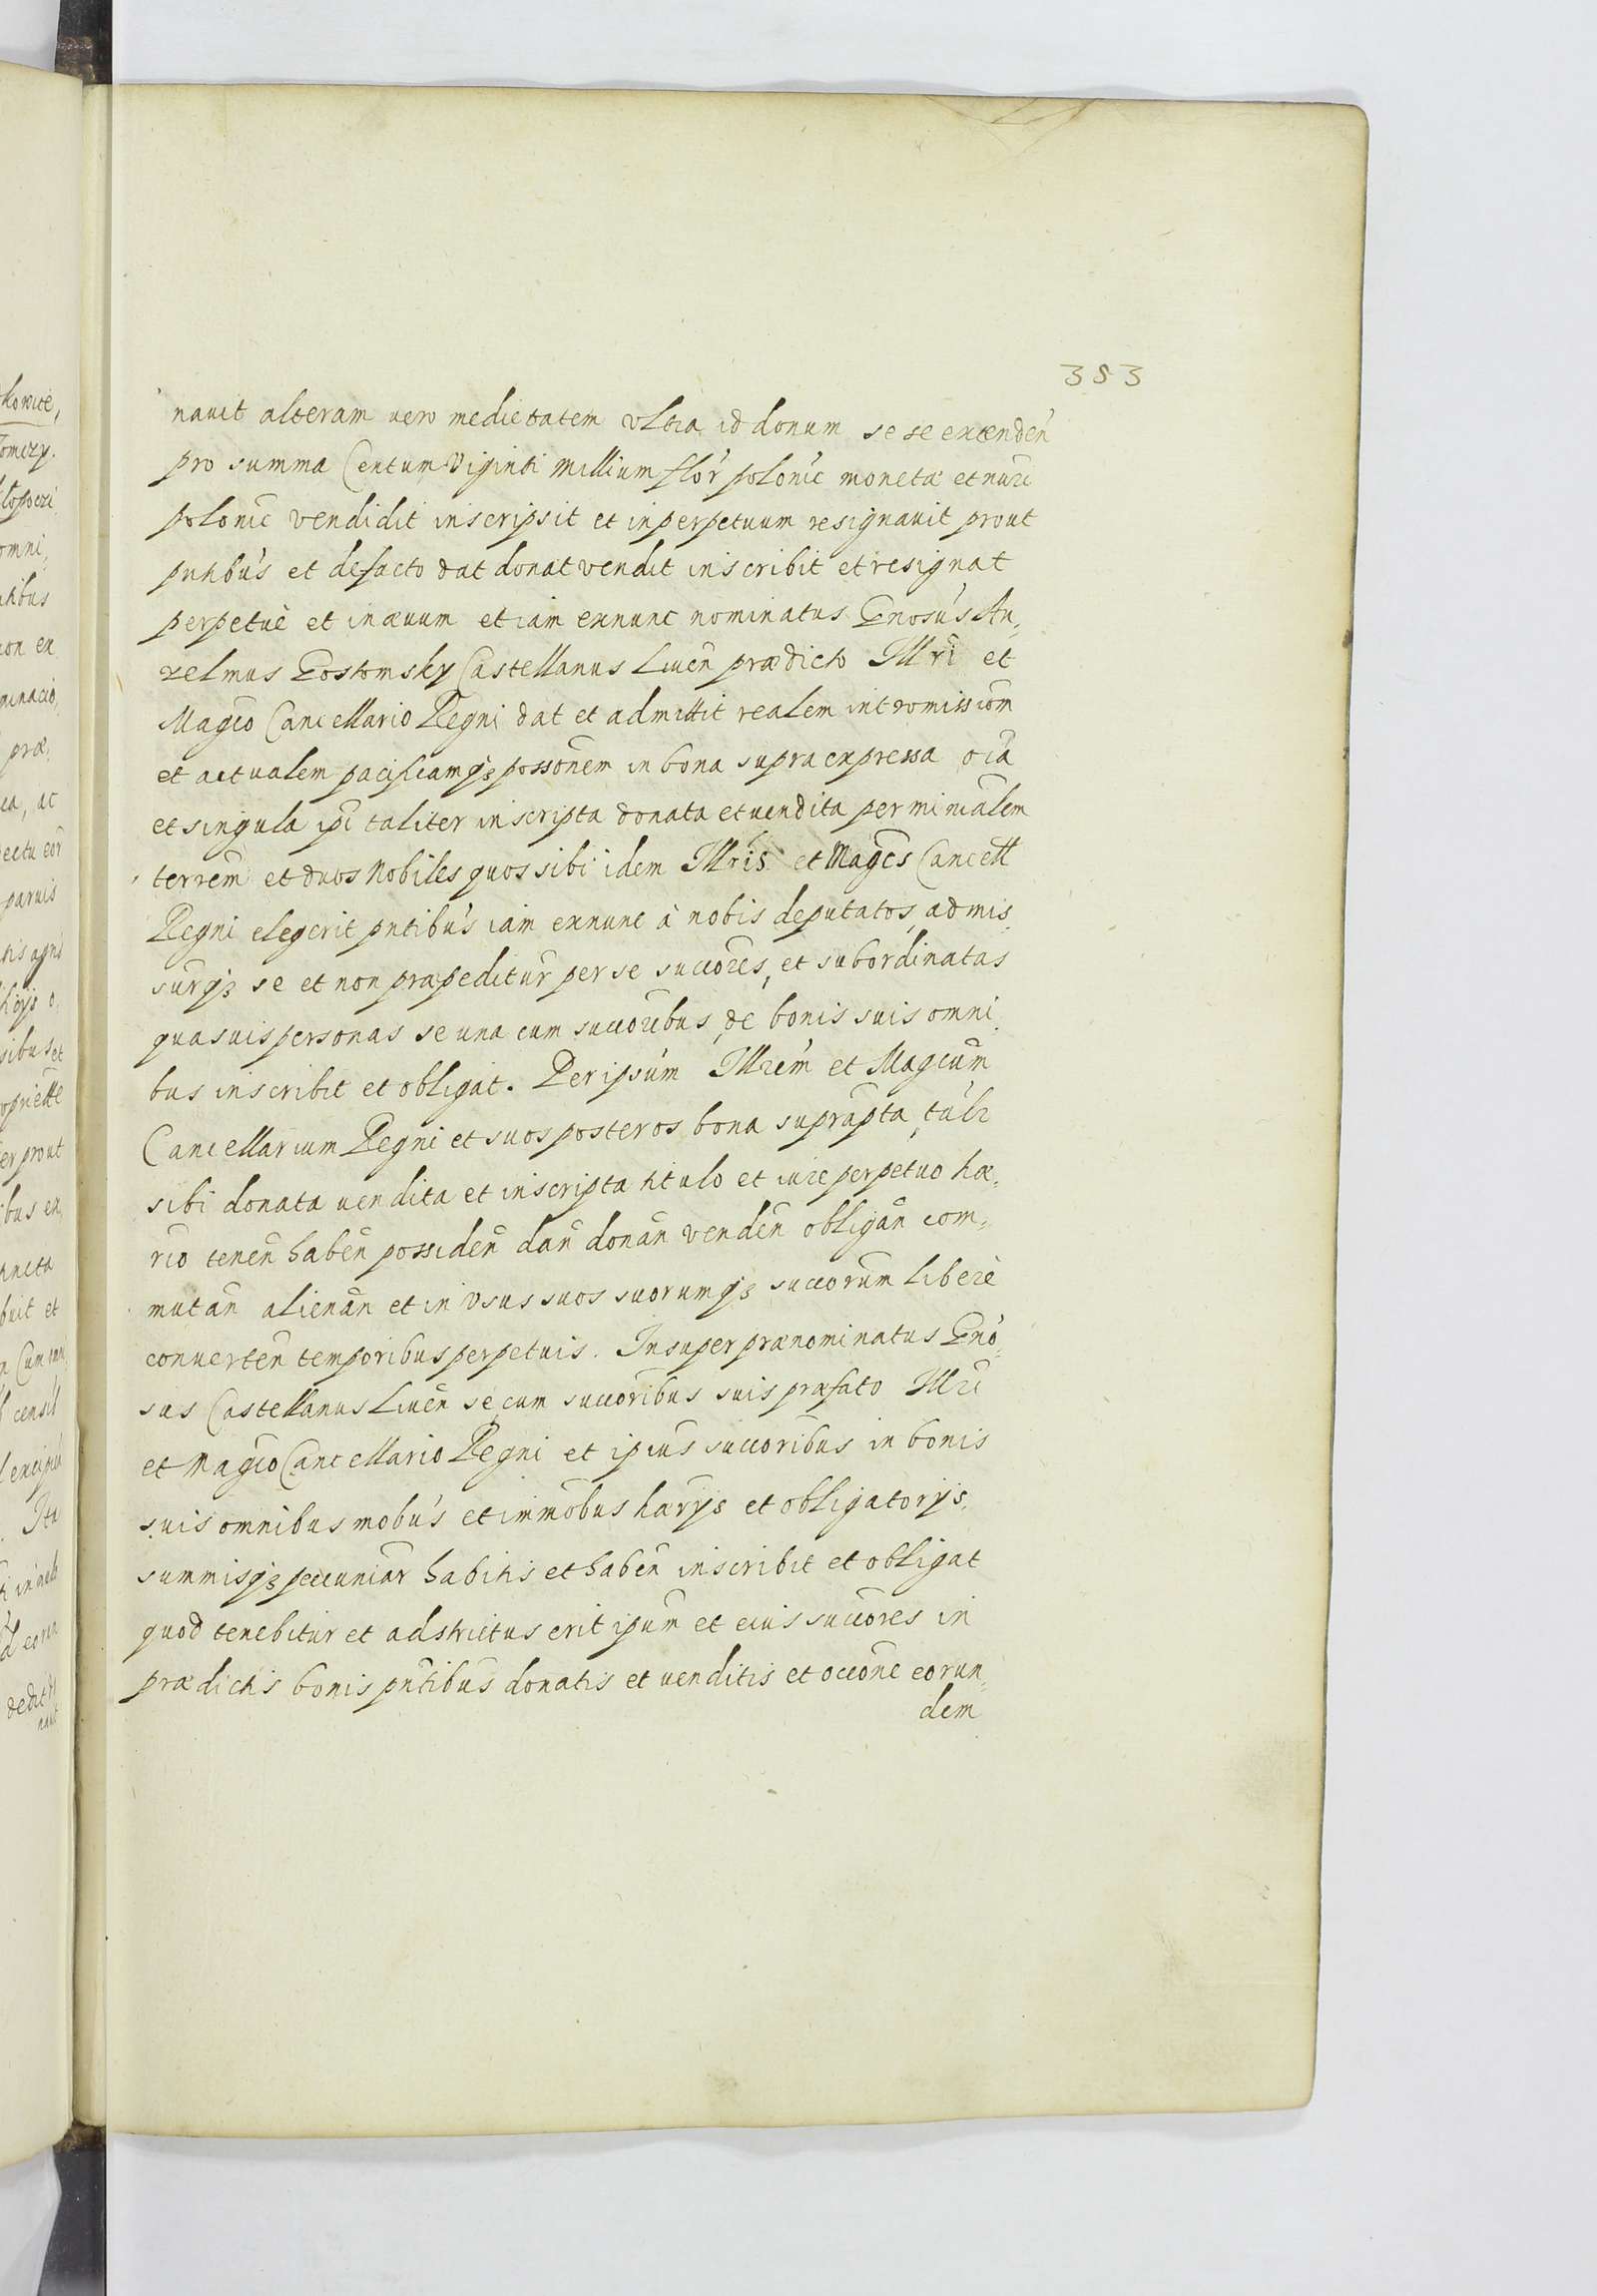 353
nauit alteram uero medietatem vltra id donum se se extenden̄
pro summa Centum Viginti Millium flor̄ polonic̄ monetæ et nūri
polonic̄ vendidit inscripsit et in perpetuum resignauit prout
pn̄tibus et defacto dat donat vendit inscribit et resignat
perpetuè et in æuum et iam exnunc nominatus Gnōsus An,
zelmus Gostomsky Castellanus Liuen̄ prædicto Illri et
Magc̄o Cancellario Regni dat et admittit realem intromissiom̄
et actualem pacificamq₃ possōnem in bona supra expressa oīa
et singula ip̄i taliter inscripta donata et uendita per minrālem
terrem̄ et duos Nobiles quos sibi idem Illris et Magcs Cancell
Regni elegerit pn̄tibus iam exnunc à nobis deputatos, admis,
surq₃ se et non præpeditur per se succōres, et subordinatas
quasuis personas se una cum succōribus, de bonis suis omni,
bus inscribit et obligat. Per ipsum Illrem et Magcum
Cancellarium Regni et suos posteros bona suprap̄ta, talr̄
sibi donata uendita et inscripta titulo et iure perpetuo hæ,
rio tenen̄ haben̄ possiden̄ dan̄ donan̄ venden̄ obligan̄ com,
mutan̄ alienan̄ et in vsus suos suorumq₃ succōrum liberè
conuerten̄ temporibus perpetuis. Insuper prænominatus Gnō
sus Castellanus Liuen̄ se cum succōribus suis præfato Illri
et Magc̄o Cancellario Regni et ip̄ius succōribus in bonis
suis omnibus mobus et immobus harÿs et obligatorÿs,
summisq₃ peccuniar̄ habitis et haben̄ inscribit et obligat
quod tenebitur et adstrictus erit ip̄um et eius succōres in
prædictis bonis pn̄tibus donatis et uenditis et occōne eorun,
dem